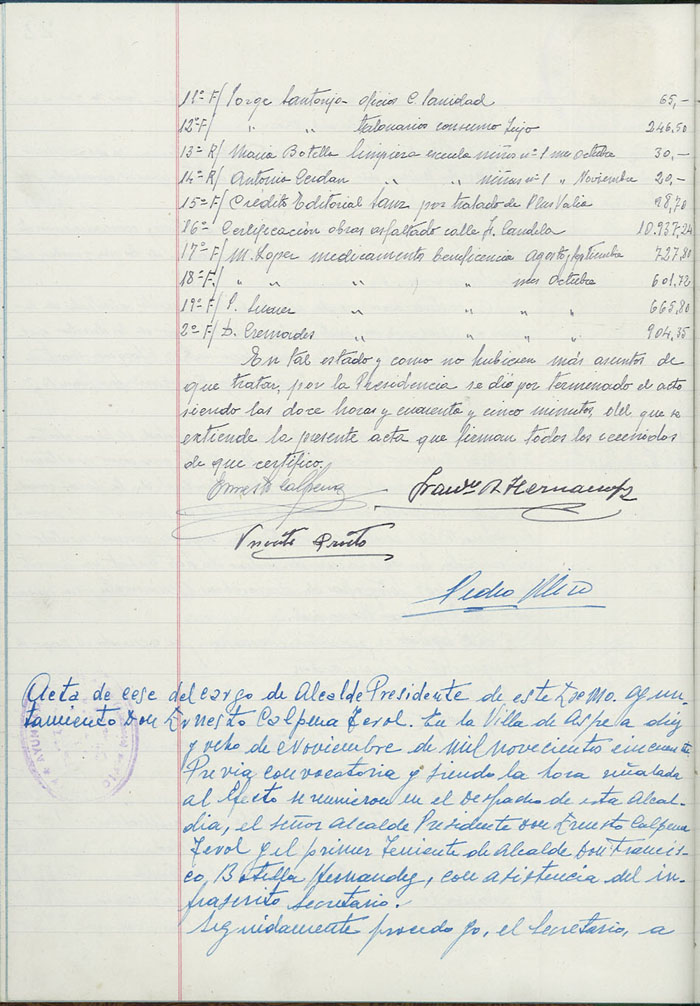 11º F/ Jorge Santonja oficios C. Sanidad 65,-
12º F/ " " talonarios consumo lujo 246.50
13º R/ Maria Botella limpieza escuela niños nº 1 mes Octubre 30,-
14º R/ Antonia Cerdan " " niños nº 1 " Noviembre 20,-
15º F/ Credito Editorial Sanz por tratado de Plus Valia 98,70
16º Certificación obras asfaltado calle J. Candela 10.937,24
17º F/ M. Lopez medicamentos beneficencia Agosto y septiembre 727,80
18º F/ " " " " mes Octubre 601.72
19º F/ " " " 665,80
2º F/ D. Cremades " " " 904,35
En tal estado y como no hubiesen más asuntos de
que tratar, por la Presidencia se dio por terminado el acto
siendo las doce horas y cuarenta y cinco minutos, del que se
extiende la presente acta que firman todos los reunidos
de que certifico.
Ernesto Calpena Franco B Hernandez
Vicente Prieto
Pedro
Acta de cese del cargo de Alcalde Presidente de este Excmo. Ayun-
tamiento Don Ernesto Calpena Terol. En la Villa de Aspe a diez
y ocho de Noviembre de mil novecientos cincuenta
Previa convocatoria y siendo la hora señalada
al efecto se reunieron en el Despacho de esta Alcal-
dia, el señor Alcalde Presidente Don Ernesto Calpena
Terol y el primer Teniente de Alcalde Don Francis-
co Botella Hernandez, con asistencia del in-
frascrito Secretario.
Seguidamente procedo yo, el Secretario, a